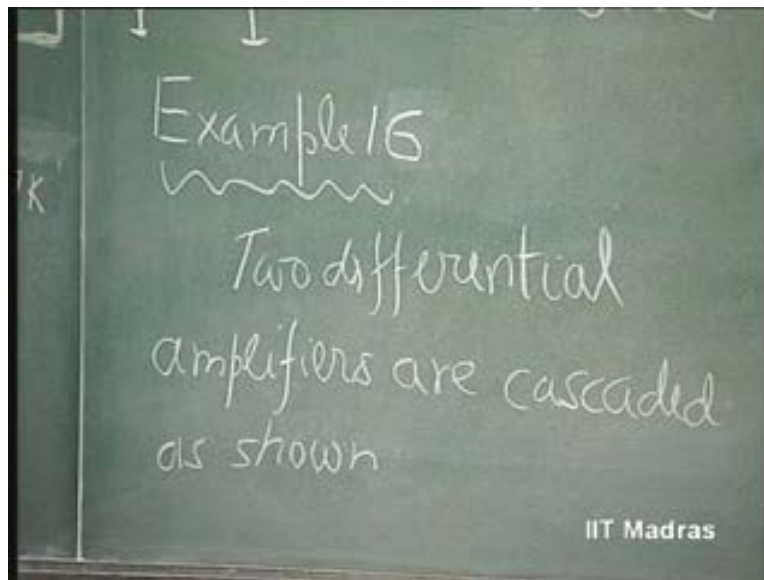 K
Example 16
Two differential
amplifiers are cascaded
as shown
IIT Madras